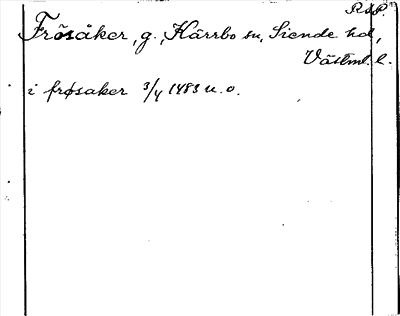 R&P.
Frösåker, g., Kärrbo sn, Siende hd,
Västml. l.
i frøsaker 3/4 1483 u.o.